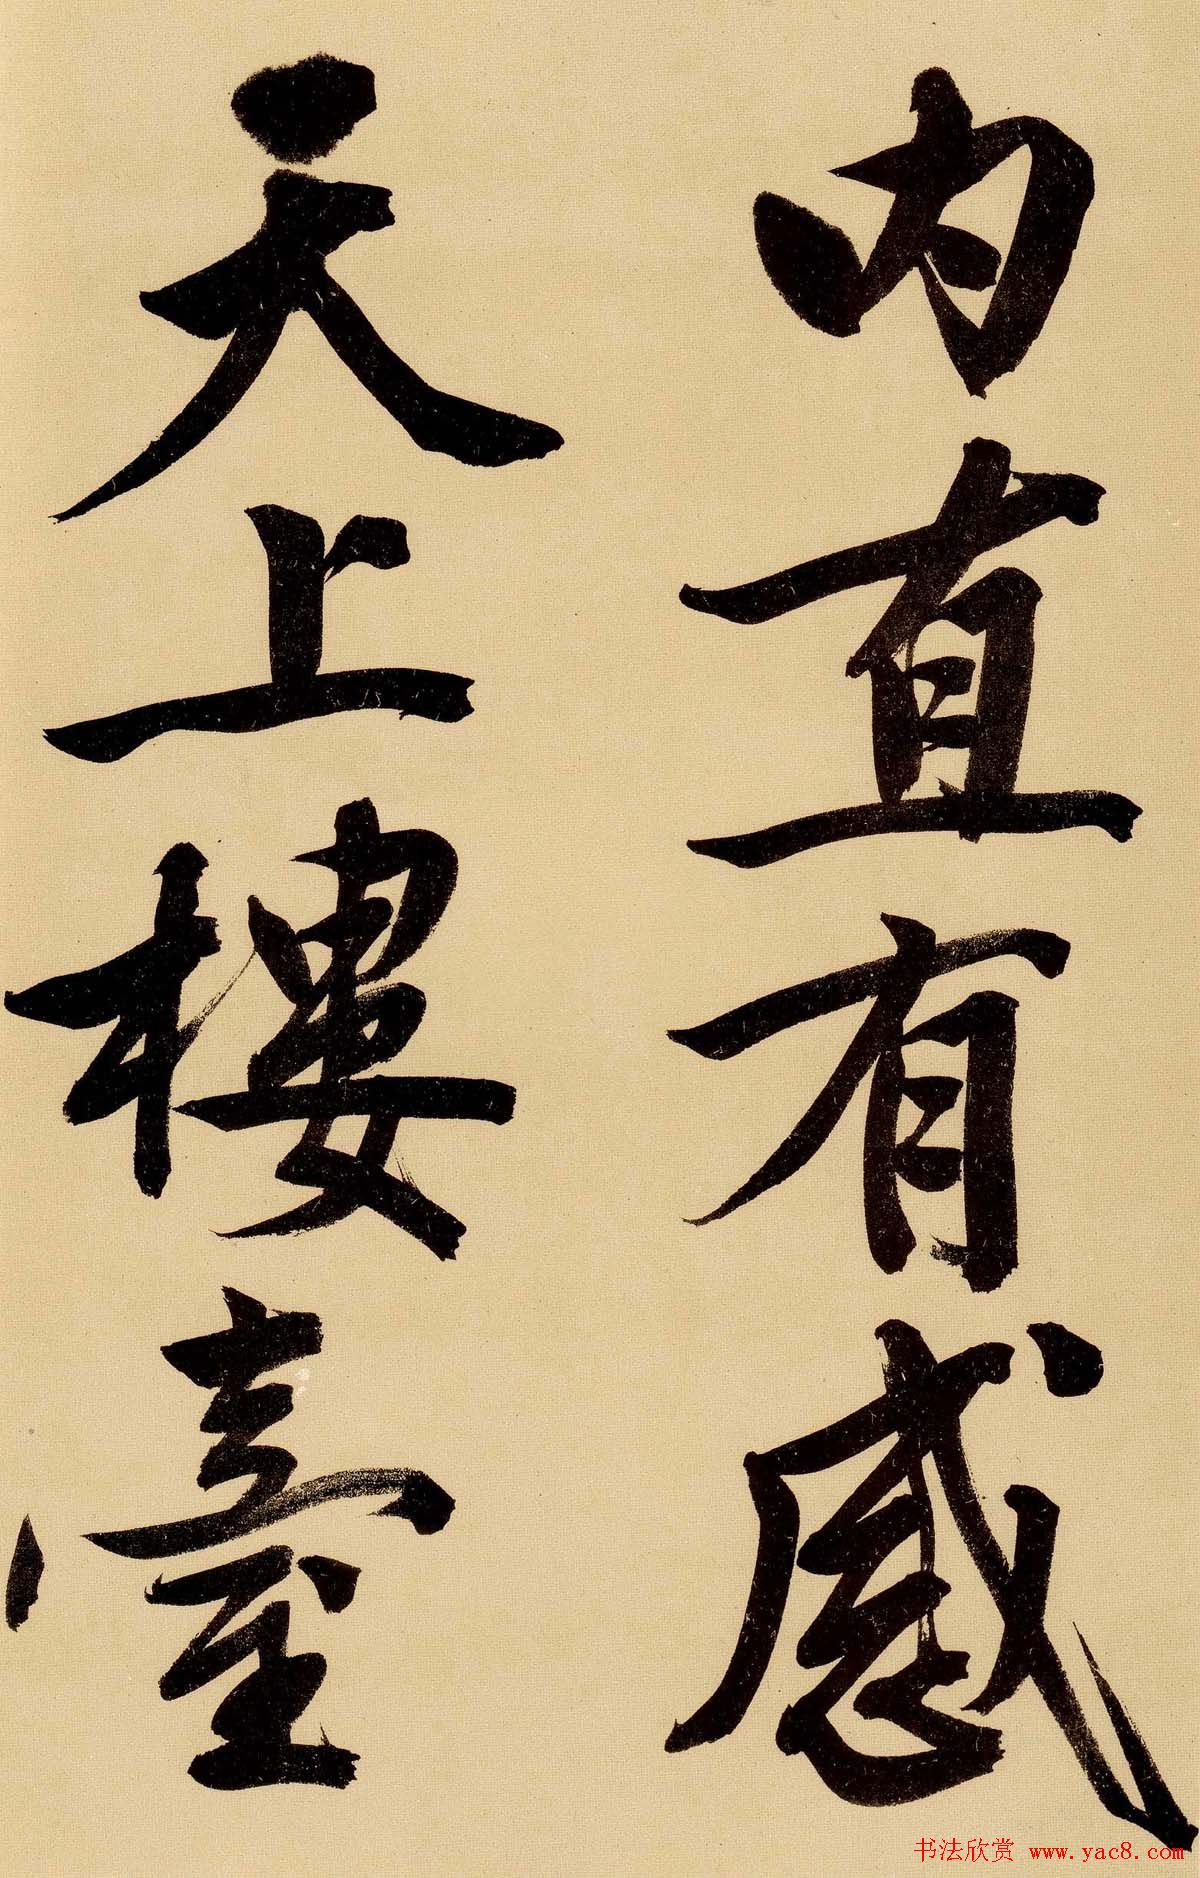 内直有感
天上樓臺
书法欣赏 www.yac8.com